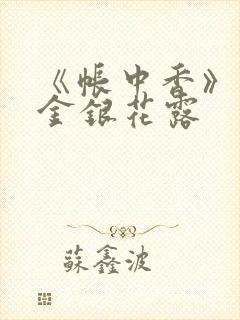 《帳中香》
金銀花露
蘇鑫波